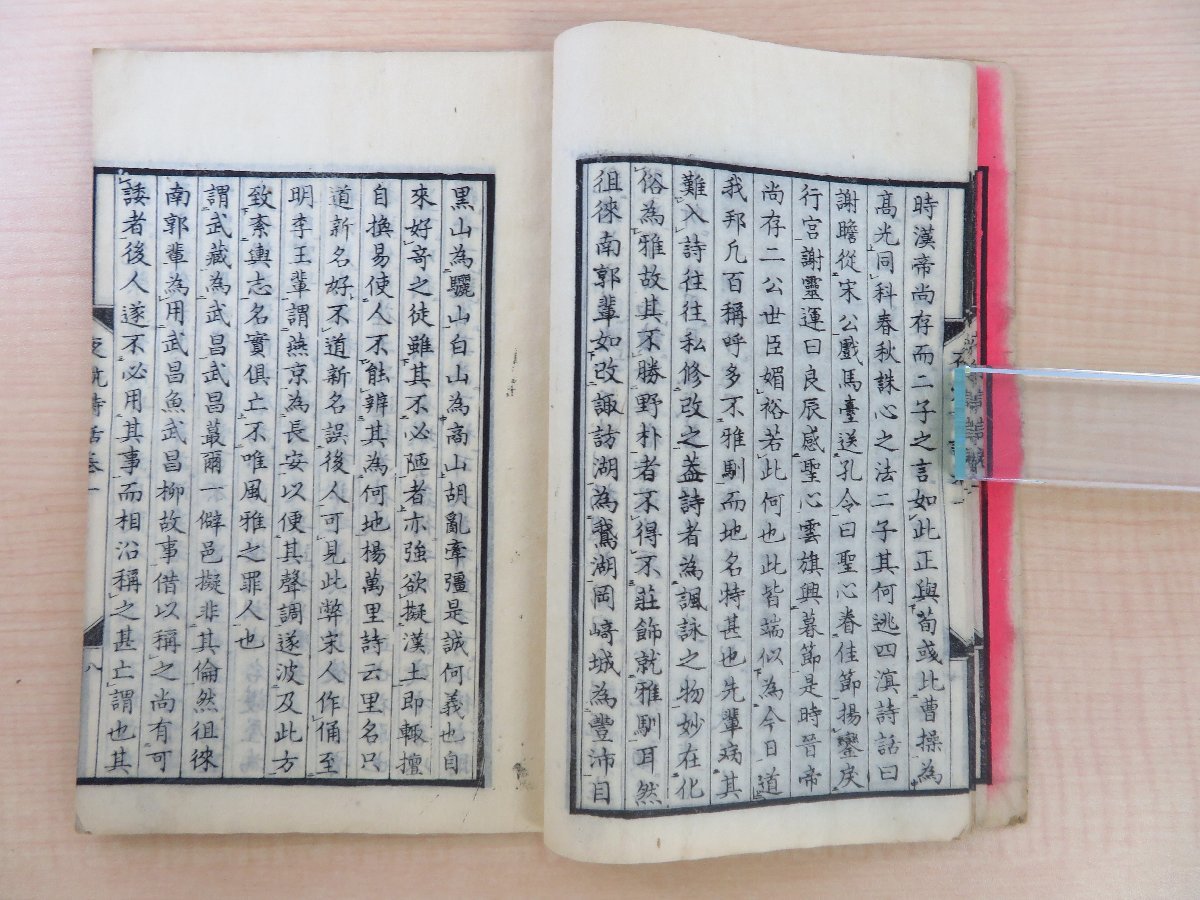 時漢帝尚存而二子之言如此正與荀彧比曹操為
高光同科春秋誅心之法二子其何逃四溟詩話曰
謝瞻從宋公戲馬臺送孔令曰聖心眷佳節揚鑾戾
行宮謝靈運曰良辰感聖心雲旗興暮節是時晉帝
尚存二公世臣媚裕若此何也此皆端似為今日道
我邦凡百稱呼多不雅馴而地名特甚也先輩病其
難入詩往往私修改之葢詩者為諷詠之物妙在化
俗為雅故其不勝野朴者不得不莊飾就雅馴耳然
徂徠南郭輩如改諏訪湖為鵝湖岡﨑城為豐沛目
黑山為驪山白山為高山胡亂牽彊是誠何義也自
來好奇之徒雖其不必陋者亦強欲擬漢土即輙擅
自換易使人不能辨其為何地楊萬里詩云里名只
道新名好不道新名誤後人可見此弊宋人作俑至
明李王輩謂燕京為長安以便其聲調遂波及此方
致紊輿志名實俱亡不唯風雅之罪人也
謂武藏為武昌武昌蕞爾一僻邑擬非其倫然徂徠
南郭輩為用武昌魚武昌柳故事借以稱之尚有可
諉者後人遂不必用其事而相沿稱之甚亡謂也其
夜航詩話卷一
八